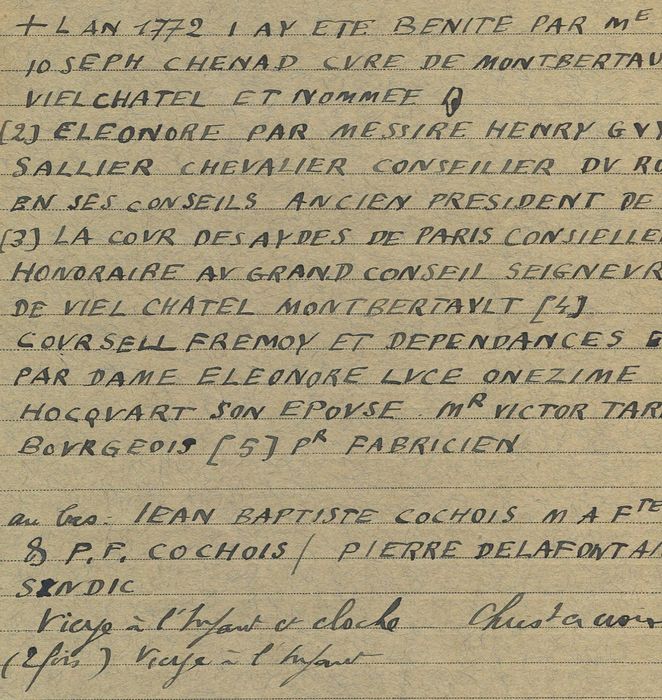 + L AN 1772 I AY ETE BENITE PAR ME
IOSEPH CHENAD CVRE DE MONTBERTAV
VIELCHATEL ET NOMMEE
[2] ELEONORE PAR MESSIRE HENRY GVY
SALLIER CHEVALIER CONSEILIER DV RO
EN SES CONSEILS ANCIEN PRESIDENT DE
[3] LA COVR DES AYDES DE PARIS CONSIELLE
HONORAIRE AV GRAND CONSEIL SEIGNEVR
DE VIEL CHATEL MONTBERTAVLT [4]
COVRSELL FREMOY ET DEPENDANCES E
PAR DAME ELEONORE LVCE ONEZIME
HOCQVART SON EPOVSE MR VICTOR TAR
BOVRGEOIS [5] PR FABRICIEN
au bas - IEAN BAPTISTE COCHOIS M A FTE
& P.F. COCHOIS / PIERRE DELAFONTAI
SINDIC
Vierge à l'Enfant et cloche Christ en croix
(2 fois) Vierge à l'Enfant